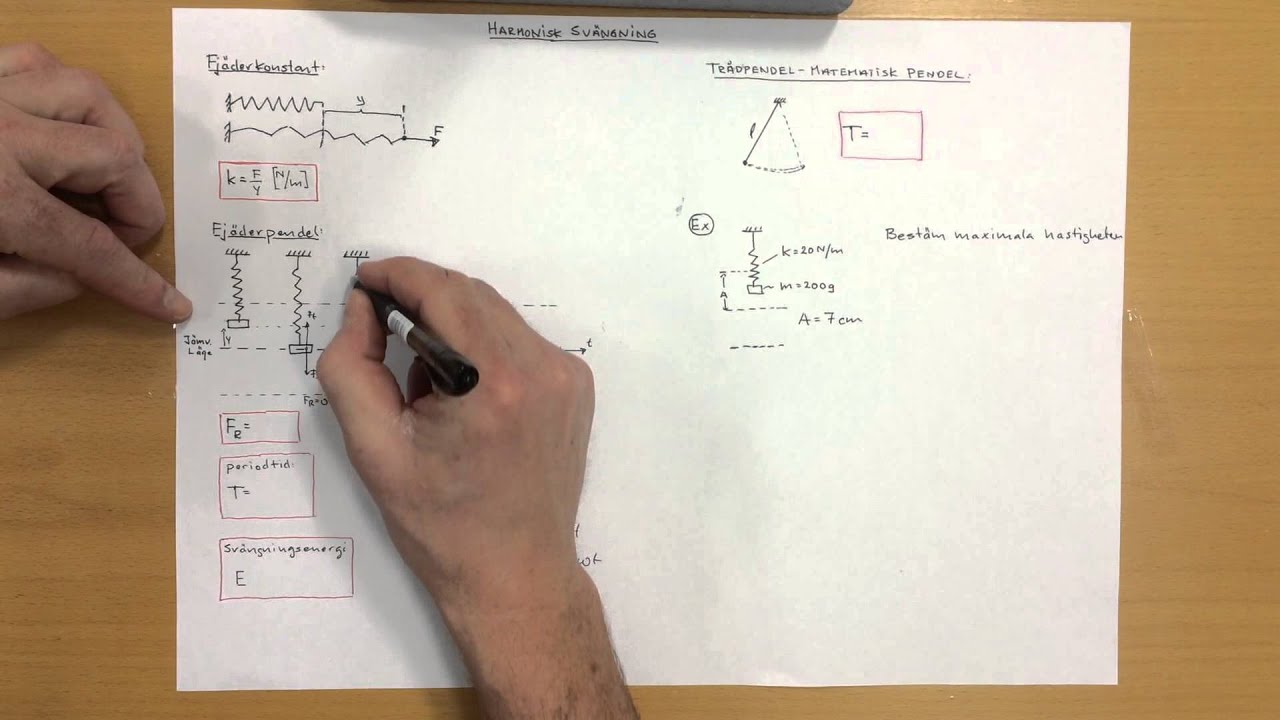 HARMONISK SVÄNGNING
Fjäderkonstant:
y
F
k = F/y [N/m]
Fjäderpendel:
Jämv.
Läge
y
t
F_R=0
F_R=
periodtid:
T=
Svängningsenergi
E
ωt
TRÅDPENDEL-MATEMATISK PENDEL:
l
T=
Ex
k=20N/m
m=200g
A
A=7cm
Bestäm maximala hastigheten